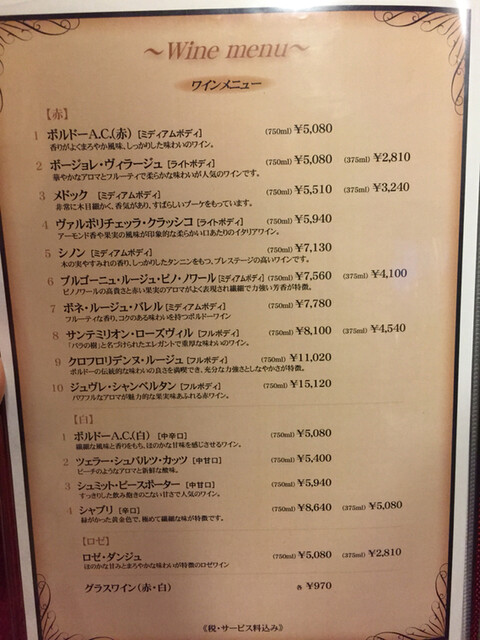 ～Wine menu～
ワインメニュー
【赤】
1 ボルドーA.C.(赤) [ミディアムボディ] (750ml) ¥5,080
香りがよくまろやか風味、しっかりした味わいのワイン。
2 ボージョレ・ヴィラージュ [ライトボディ] (750ml) ¥5,080 (375ml) ¥2,810
華やかなアロマとフルーティで柔らかな味わいが人気のワインです。
3 メドック [ミディアムボディ] (750ml) ¥5,510 (375ml) ¥3,240
非常に木目細かく、香気があり、すばらしいブーケをもっています。
4 ヴァルポリチェッラ・クラッシコ [ライトボディ] (750ml) ¥5,940
アーモンド香や果実の風味が印象的な柔らかい口あたりのイタリアワイン。
5 シノン [ミディアムボディ] (750ml) ¥7,130
木の実やすみれの香り、しっかりしたタンニンをもつ、プレステージの高いワインです。
6 ブルゴーニュ・ルージュ・ピノ・ノワール [ミディアムボディ] (750ml) ¥7,560 (375ml) ¥4,100
ピノノワールの高貴さと赤い果実のアロマがよく表現され繊細で力強い芳香が特徴。
7 ボネ・ルージュ・バレル [ミディアムボディ] (750ml) ¥7,780
フルーティな香り、コクのある味わいを持つボルドーワイン
8 サンテミリオン・ローズヴィル [フルボディ] (750ml) ¥8,100 (375ml) ¥4,540
「バラの樹」と名づけられたエレガントで重厚な味わいのワイン。
9 クロフロリデンヌ・ルージュ [フルボディ] (750ml) ¥11,020
ボルドーの伝統的な味わいの良さを満喫でき、充分な力強さとしなやかさが特徴。
10 ジュヴレ・シャンベルタン [フルボディ] (750ml) ¥15,120
パワフルなアロマが魅力的な果実味あふれる赤ワイン。
【白】
1 ボルドーA.C.(白) [中辛口] (750ml) ¥5,080
繊細な風味と香りをもち、ほのかな甘味を感じさせるワイン。
2 ツェラー・シュバルツ・カッツ [中甘口] (750ml) ¥5,400
ピーチのようなアロマと新鮮な酸味。
3 シュミット・ピースポーター [中甘口] (750ml) ¥5,940
すっきりした飲み飽きのこない甘さで人気のワイン。
4 シャブリ [辛口] (750ml) ¥8,640 (375ml) ¥5,080
緑がかった黄金色で、極めて繊細な味が特徴です。
【ロゼ】
ロゼ・ダンジュ (750ml) ¥5,080 (375ml) ¥2,810
ほのかな甘みとまろやかな味わいが特徴のロゼワイン
グラスワイン(赤・白) 各 ¥970
《税・サービス料込み》